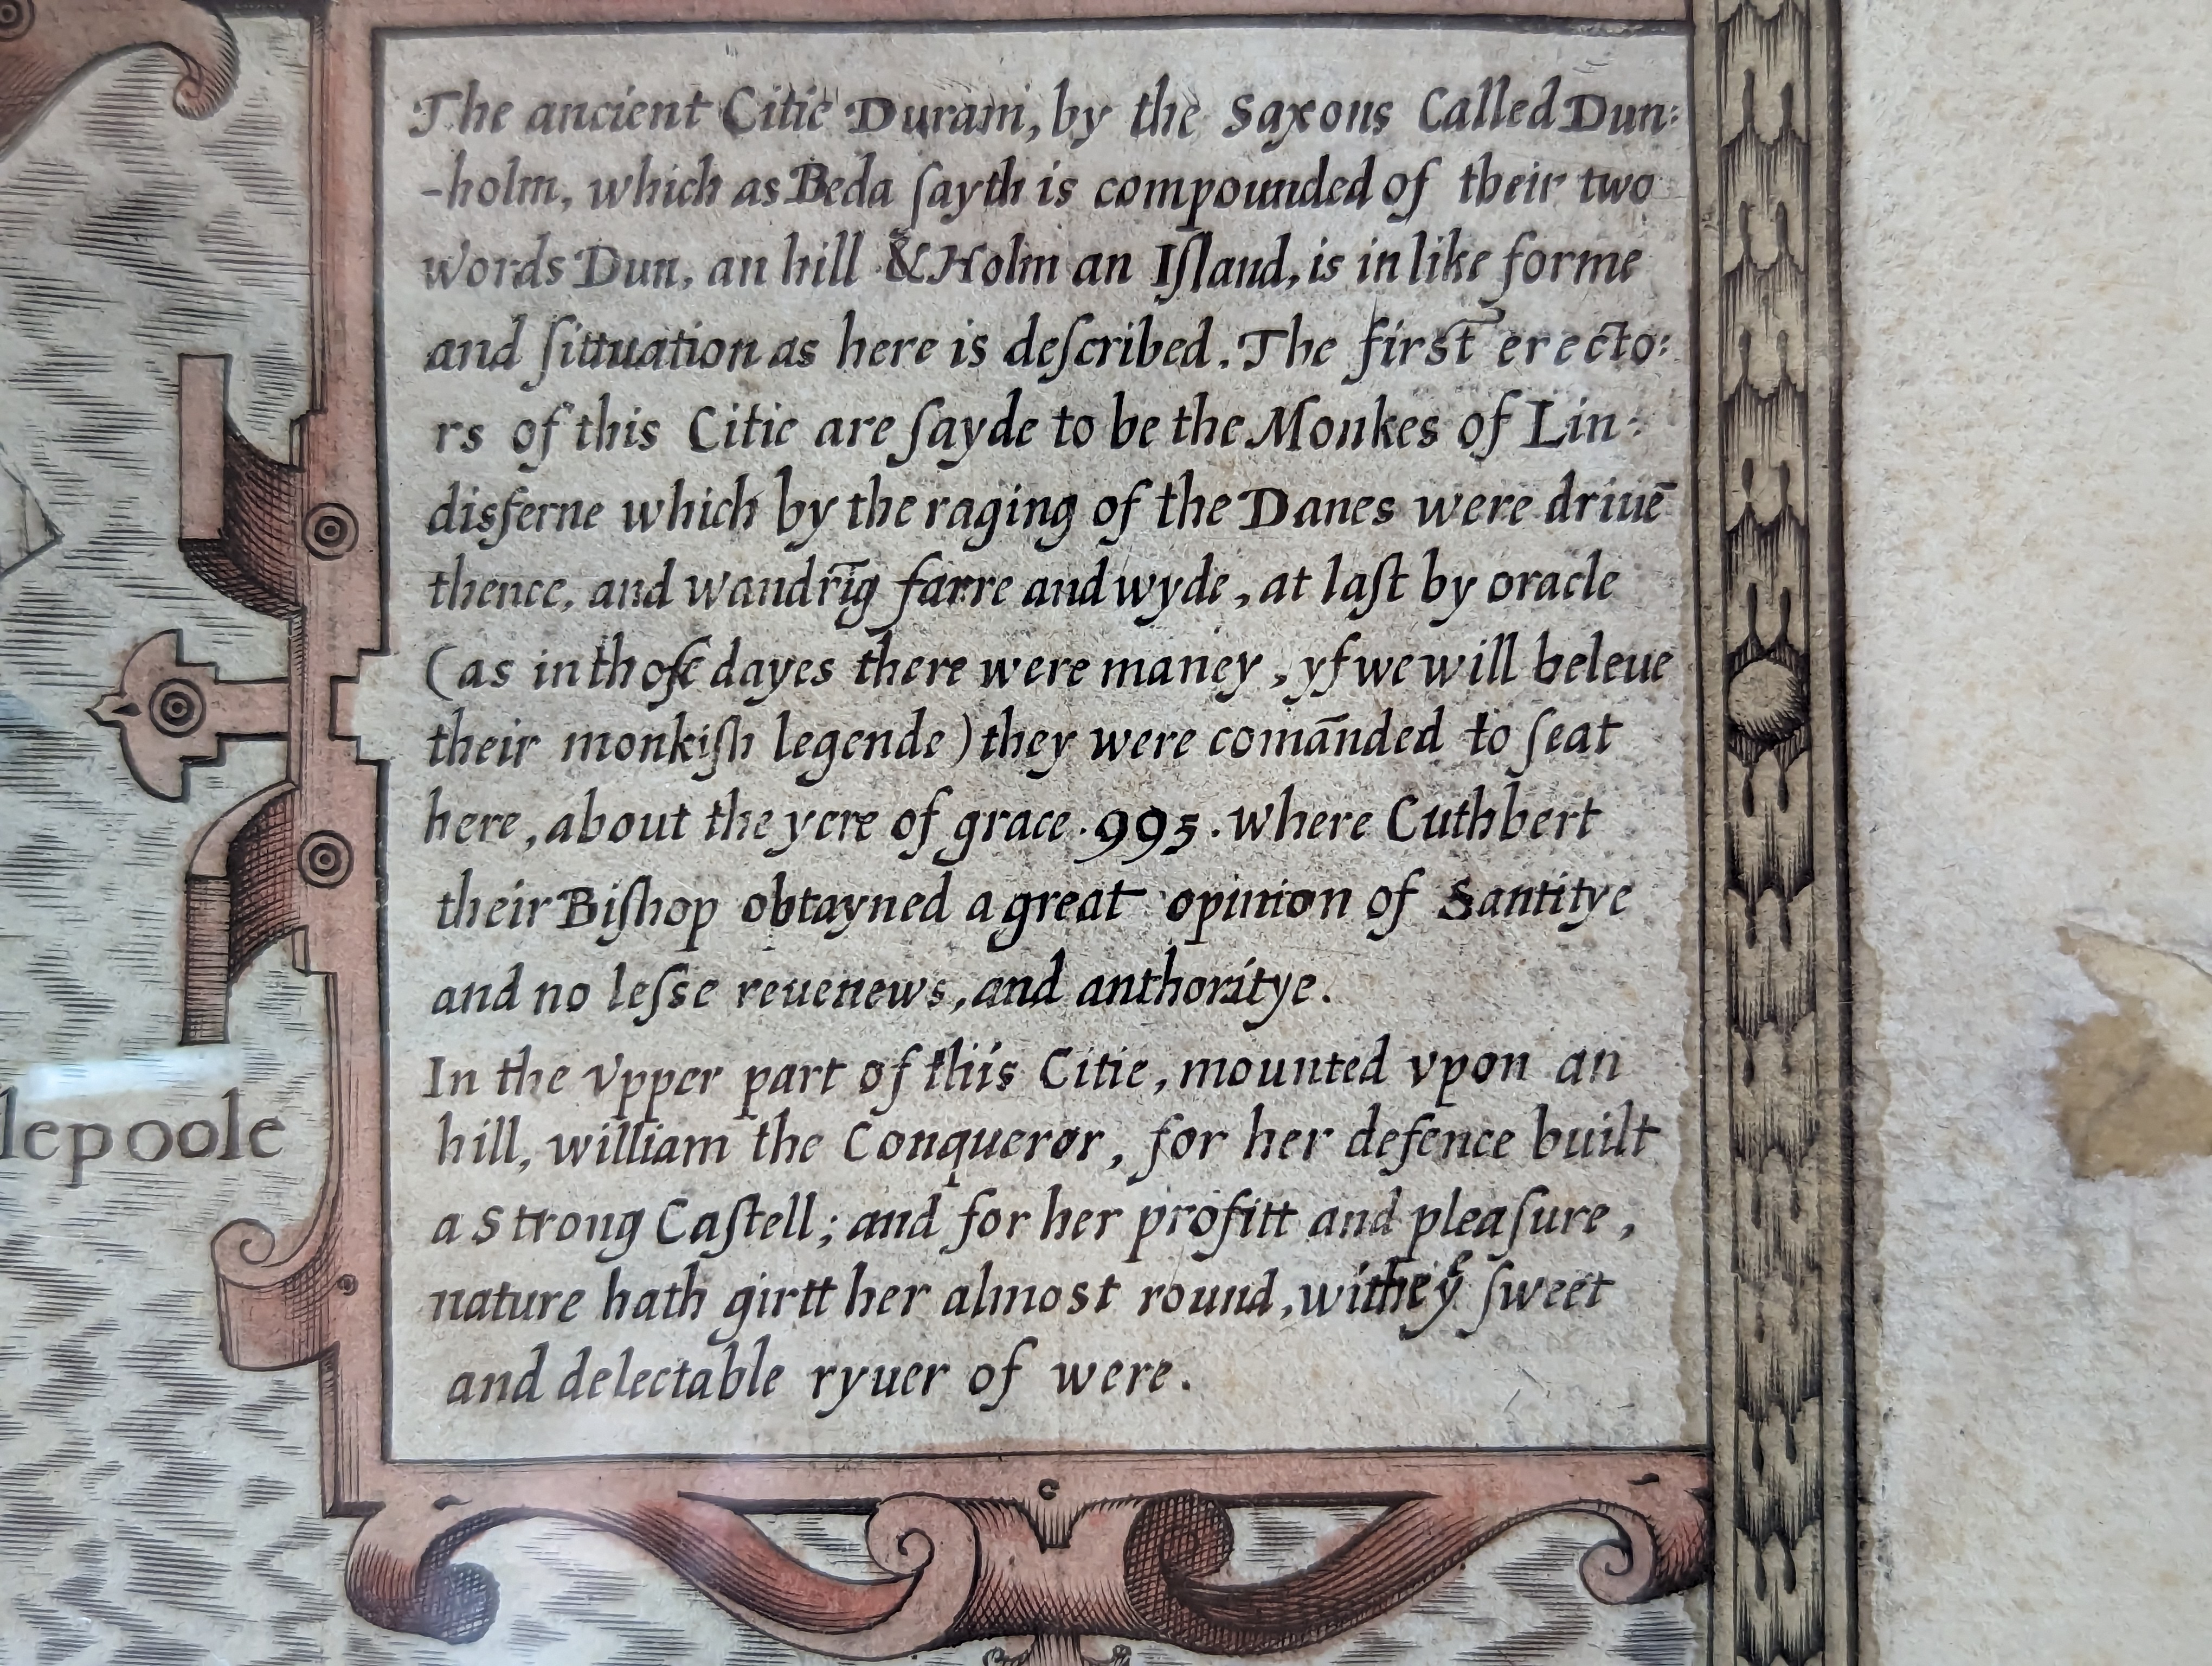 The ancient Citie Duram, by the Saxons Called Dun:
-holm, which as Beda ſayth is compounded of their two
words Dun, an hill & Holm an Iſland, is in like forme
and ſittuation as here is deſcribed. The first erecto:
rs of this Citie are ſayde to be the Monkes of Lin:
disferne which by the raging of the Danes were driuē
thence, and wandrīg farre and wyde, at laſt by oracle
(as in thoſe dayes there were maney, yf we will beleue
their monkiſh legende) they were comānded to ſeat
here, about the yere of grace .995. where Cuthbert
their Biſhop obtayned a great opinion of Santitye
and no leſse reuenews, and anthoritye.
In the Vpper part of this Citie, mounted vpon an
hill, william the Conqueror, for her defence built
a Strong Caſtell; and for her profitt and pleaſure,
nature hath girtt her almost round, with ſweet
and delectable ryuer of were.
lepoole